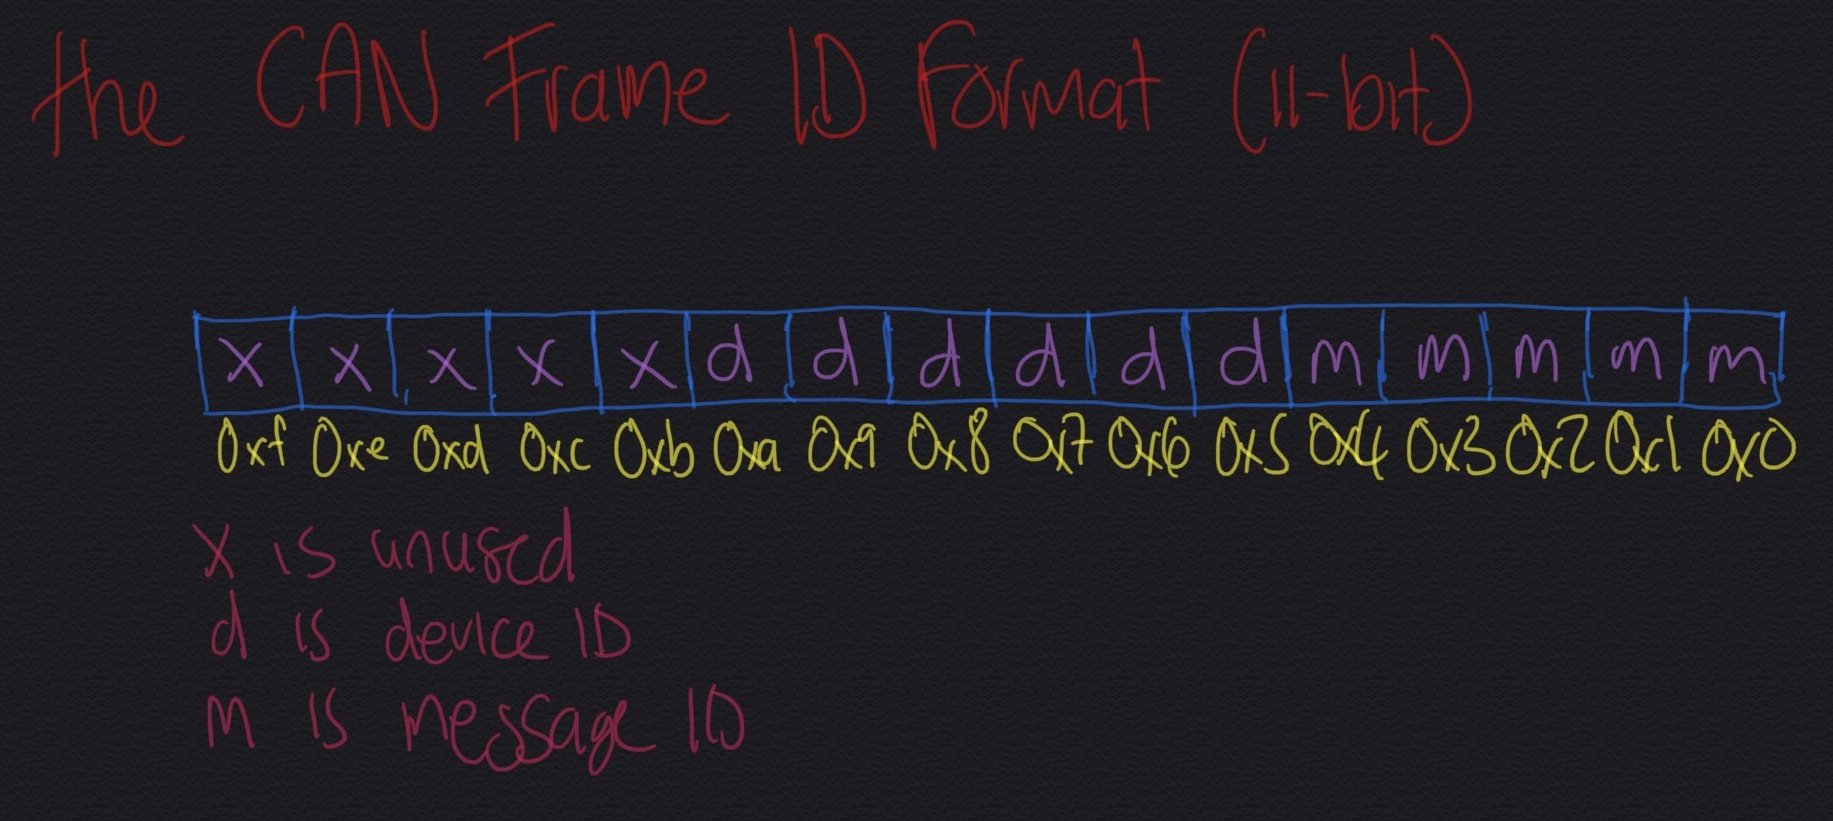 the CAN Frame ID Format (11-bit)
x x x x x d d d d d d m m m m m
0xf 0xe 0xd 0xc 0xb 0xa 0x9 0x8 0x7 0x6 0x5 0x4 0x3 0x2 0x1 0x0
x is unused
d is device ID
m is message ID